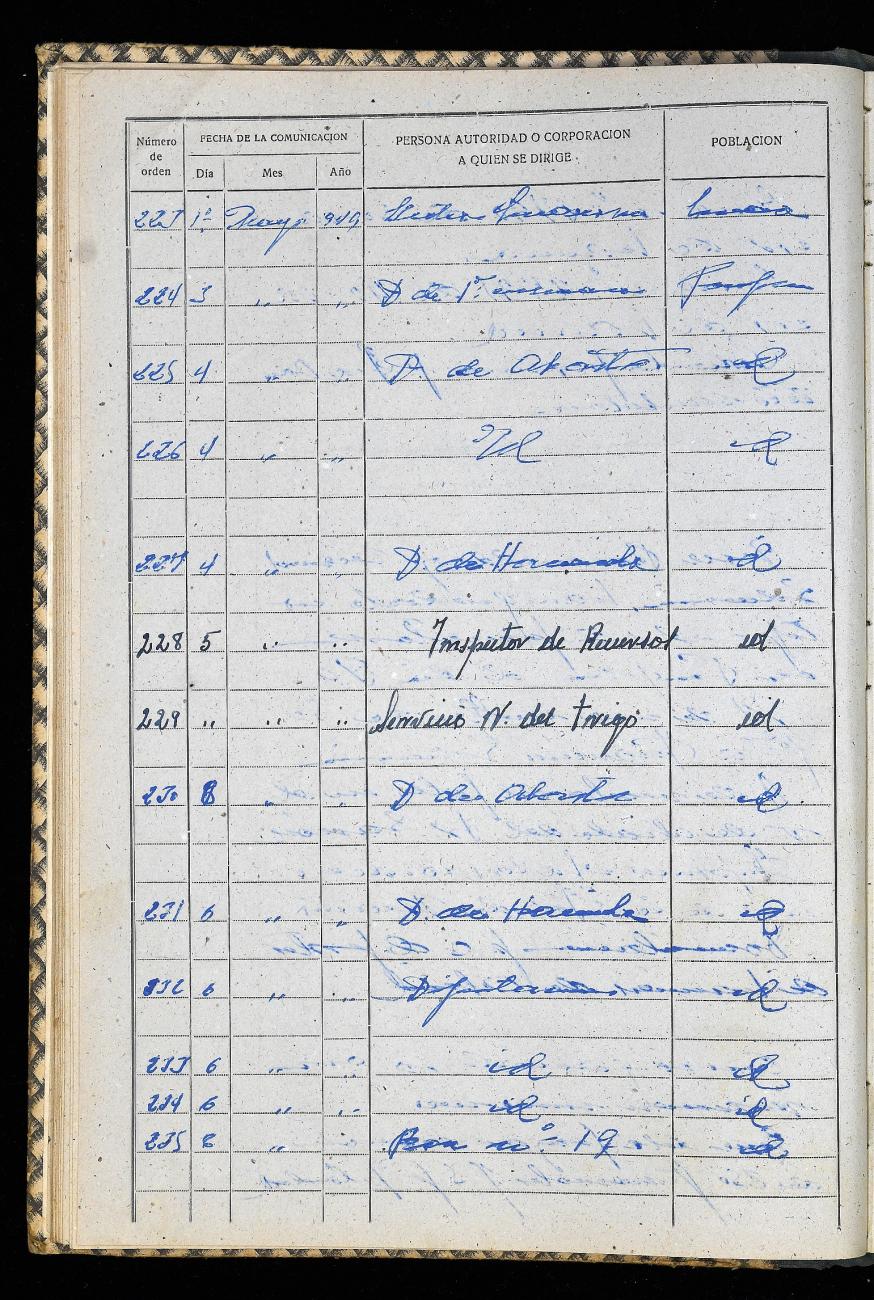 Número de orden FECHA DE LA COMUNICACION PERSONA AUTORIDAD O CORPORACION A QUIEN SE DIRIGE POBLACION
Día Mes Año
223 1º Mayo 949
224 3 " " D de 1ª
225 4 " " D. de Abastos id
226 4 " " Id id
227 4 " " D de Hacienda id
228 5 " " Inspector de Recursos id
229 " " " Servicio N. del trigo id
230 8 " " D de Abastos id
231 6 " " D. de Hacienda id
232 6 " " id
233 6 " " id id
234 6 " " id id
235 8 " nº 19 id